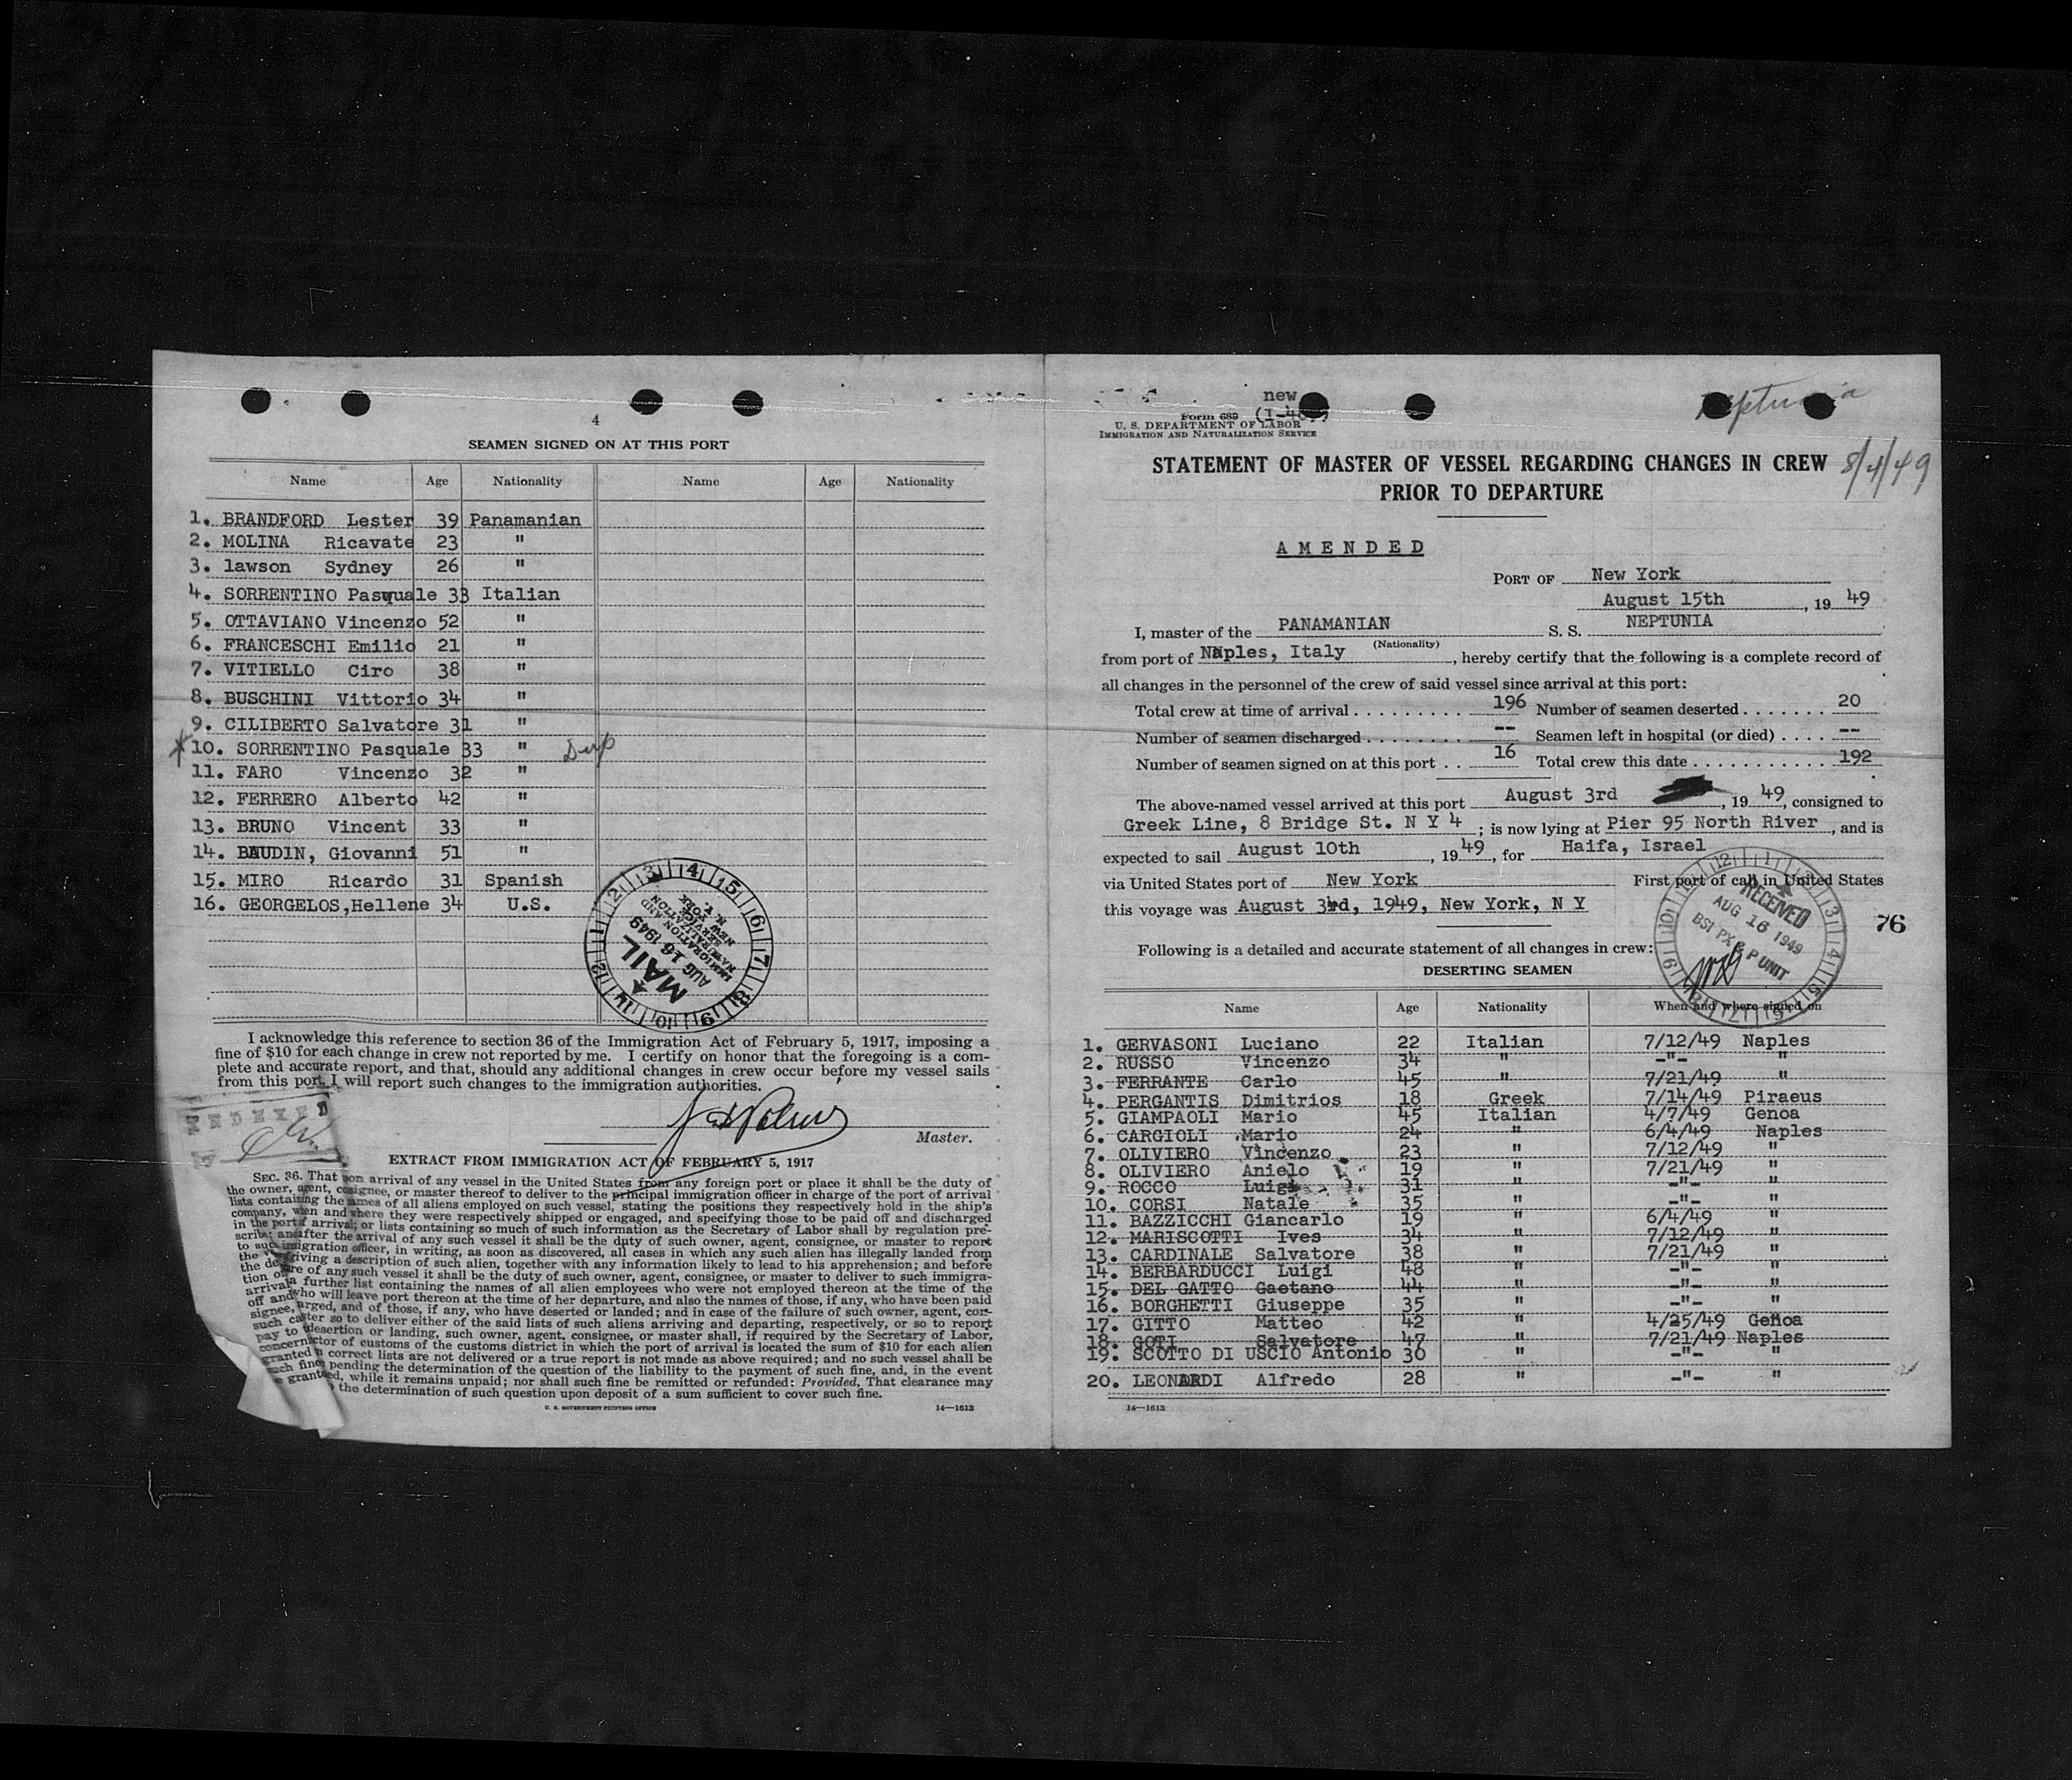 4
SEAMEN SIGNED ON AT THIS PORT
Name Age Nationality Name Age Nationality
1. BRANDFORD Lester 39 Panamanian
2. MOLINA Ricavate 23 "
3. lawson Sydney 26 "
4. SORRENTINO Pasquale 33 Italian
5. OTTAVIANO Vincenzo 52 "
6. FRANCESCHI Emilio 21 "
7. VITIELLO Ciro 38 "
8. BUSCHINI Vittorio 34 "
9. CILIBERTO Salvatore 31 "
10. SORRENTINO Pasquale 33 " Dup
11. FARO Vincenzo 32 "
12. FERRERO Alberto 42 "
13. BRUNO Vincent 33 "
14. BAUDIN, Giovanni 51 "
15. MIRO Ricardo 31 Spanish
16. GEORGELOS,Hellene 34 U.S.
MAIL
AUG 16 1949
IMMIGRATION AND
NATURALIZATION
SERVICE
NEW YORK
N. Y.
I acknowledge this reference to section 36 of the Immigration Act of February 5, 1917, imposing a
fine of $10 for each change in crew not reported by me. I certify on honor that the foregoing is a com-
plete and accurate report, and that, should any additional changes in crew occur before my vessel sails
from this port, I will report such changes to the immigration authorities.
Master.
EXTRACT FROM IMMIGRATION ACT OF FEBRUARY 5, 1917
SEC. 36. That upon arrival of any vessel in the United States from any foreign port or place it shall be the duty of
the owner, agent, consignee, or master thereof to deliver to the principal immigration officer in charge of the port of arrival
lists containing the names of all aliens employed on such vessel, stating the positions they respectively hold in the ship's
company, when and where they were respectively shipped or engaged, and specifying those to be paid off and discharged
in the port of arrival; or lists containing so much of such information as the Secretary of Labor shall by regulation pre-
scribe; and after the arrival of any such vessel it shall be the duty of such owner, agent, consignee, or master to report
to such immigration officer, in writing, as soon as discovered, all cases in which any such alien has illegally landed from
the giving a description of such alien, together with any information likely to lead to his apprehension; and before
tion of any such vessel it shall be the duty of such owner, agent, consignee, or master to deliver to such immigra-
arrival a further list containing the names of all alien employees who were not employed thereon at the time of the
off and who will leave port thereon at the time of her departure, and also the names of those, if any, who have been paid
signee, arged, and of those, if any, who have deserted or landed; and in case of the failure of such owner, agent, con-
such ter so to deliver either of the said lists of such aliens arriving and departing, respectively, or so to report
pay to desertion or landing, such owner, agent, consignee, or master shall, if required by the Secretary of Labor,
concern ctor of customs of the customs district in which the port of arrival is located the sum of $10 for each alien
granted correct lists are not delivered or a true report is not made as above required; and no such vessel shall be
fine pending the determination of the question of the liability to the payment of such fine, and, in the event
granted, while it remains unpaid; nor shall such fine be remitted or refunded: Provided, That clearance may
the determination of such question upon deposit of a sum sufficient to cover such fine.
U. S. GOVERNMENT PRINTING OFFICE 14—1613
new
Form 689
U. S. DEPARTMENT OF LABOR
IMMIGRATION AND NATURALIZATION SERVICE
Neptunia
8/4/49
STATEMENT OF MASTER OF VESSEL REGARDING CHANGES IN CREW
PRIOR TO DEPARTURE
AMENDED
PORT OF New York
August 15th, 1949
I, master of the PANAMANIAN S. S. NEPTUNIA
(Nationality)
from port of Naples, Italy, hereby certify that the following is a complete record of
all changes in the personnel of the crew of said vessel since arrival at this port:
Total crew at time of arrival . . . . . . . . . 196 Number of seamen deserted . . . . . . . 20
Number of seamen discharged . . . . . . . . -- Seamen left in hospital (or died) . . . . --
Number of seamen signed on at this port . . 16 Total crew this date . . . . . . . . . . . 192
The above-named vessel arrived at this port August 3rd, 1949, consigned to
Greek Line, 8 Bridge St. N Y 4; is now lying at Pier 95 North River, and is
expected to sail August 10th, 1949, for Haifa, Israel
via United States port of New York First port of call in United States
this voyage was August 3rd, 1949, New York, N Y
RECEIVED
AUG 16 1949
BSI PX & P UNIT
76
Following is a detailed and accurate statement of all changes in crew:
DESERTING SEAMEN
Name Age Nationality When and where signed on
1. GERVASONI Luciano 22 Italian 7/12/49 Naples
2. RUSSO Vincenzo 34 " -"- "
3. FERRANTE Carlo 45 " 7/21/49 "
4. PERGANTIS Dimitrios 18 Greek 7/14/49 Piraeus
5. GIAMPAOLI Mario 45 Italian 4/7/49 Genoa
6. CARGIOLI Mario 24 " 6/4/49 Naples
7. OLIVIERO Vincenzo 23 " 7/12/49 "
8. OLIVIERO Anielo 19 " 7/21/49 "
9. ROCCO Luigi 31 " -"- "
10. CORSI Natale 35 " -"- "
11. BAZZICCHI Giancarlo 19 " 6/4/49 "
12. MARISCOTTI Ives 34 " 7/12/49 "
13. CARDINALE Salvatore 38 " 7/21/49 "
14. BERBARDUCCI Luigi 48 " -"- "
15. DEL GATTO Gaetano 44 " -"- "
16. BORGHETTI Giuseppe 35 " -"- "
17. GITTO Matteo 42 " 4/25/49 Genoa
18. GOTI Salvatore 47 " 7/21/49 Naples
19. SCOTTO DI USCIO Antonio 30 " -"- "
20. LEONARDI Alfredo 28 " -"- "
14—1613